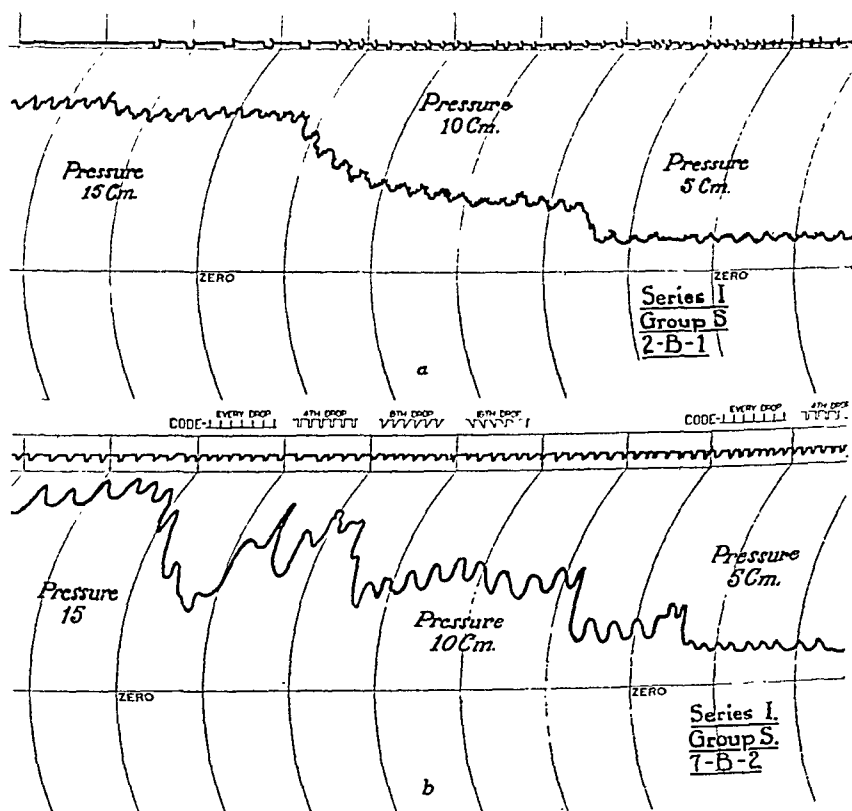 Pressure
15 Cm.
Pressure
10 Cm.
Pressure
5 Cm.
ZERO
ZERO
Series I
Group S
2-B-1
a
CODE- EVERY DROP 4TH DROP 8TH DROP 16TH DROP CODE- EVERY DROP 4TH DROP
Pressure
15
Pressure
10 Cm.
Pressure
5 Cm.
ZERO
ZERO
Series I.
Group S.
7-B-2
b